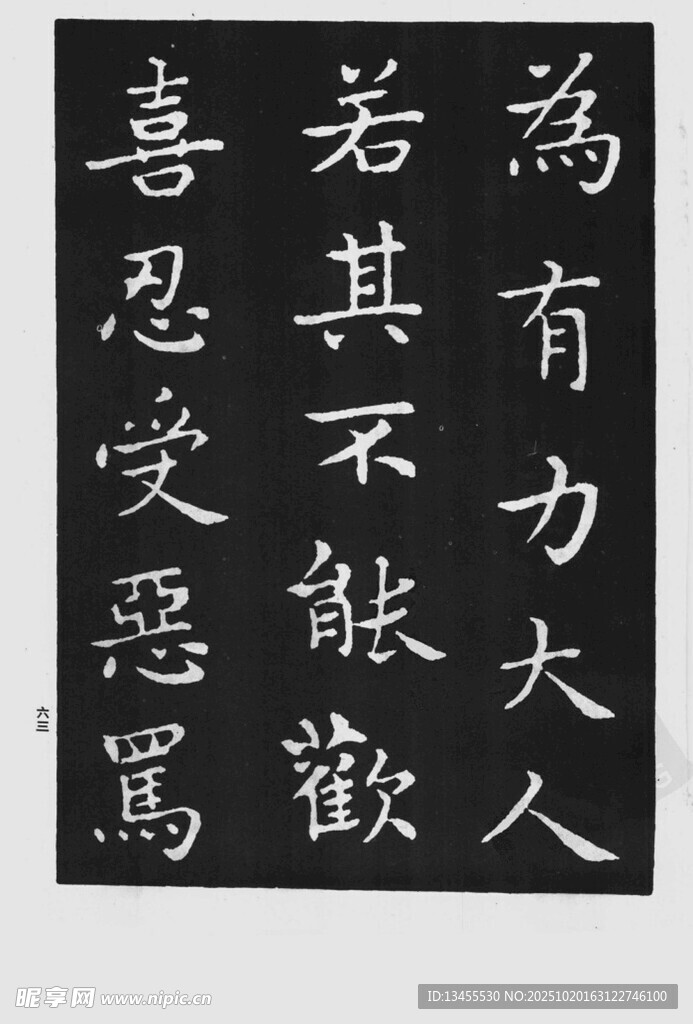 為有力大人
若其不能歡
喜忍受惡罵
六三
昵享网 www.nipic.cn
ID:13455530 NO:20251020163122746100